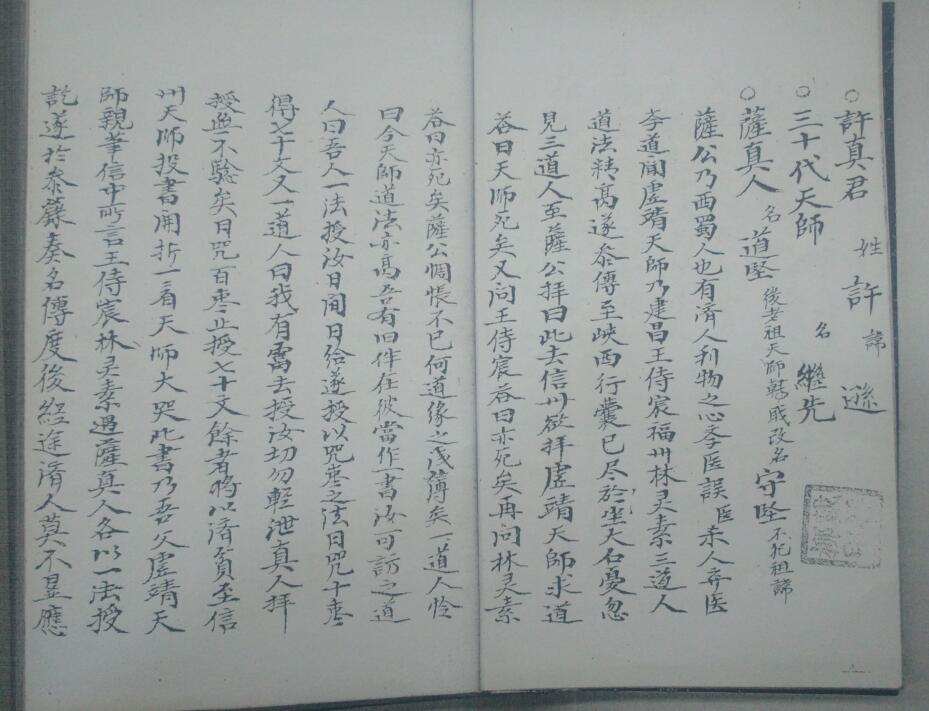 ○許真君 姓許諱遜
○三十代天師 名繼先
○薩真人 名道堅 後者祖天師諱或改名守堅不犯祖諱
薩公乃西蜀人也有濟人利物之心学医誤医杀人弃医
李道闻虚靖天師乃建昌王侍宸福州林灵素三道人
道法精髙遂叅傳至峽西行囊已尽於坐天石憂忽
見三道人至薩公拜曰此去信州欲拜虚靖天師求道
答曰天師死矣又问王侍宸答曰亦死矣再问林灵素
答曰亦死矣薩公惆悵不已何道緣之淺薄矣一道人怜
曰今天師道法亦髙吾有旧伴在彼當作一書汝可訪之道
人曰吾人一法授汝日间日给遂授以咒枣之法日咒十枣
得七十文又一道人曰我有雷法授汝切勿輕泄真人拜
授無不驗矣日咒百枣止授七十文餘者將以濟貧至信
州天師投書開折一看天師大哭此書乃吾父虚靖天
師親筆信中所言王侍宸林灵素遇薩真人各以一法授
訖遂於叅籙奏名傳度後经途濟人莫不显應